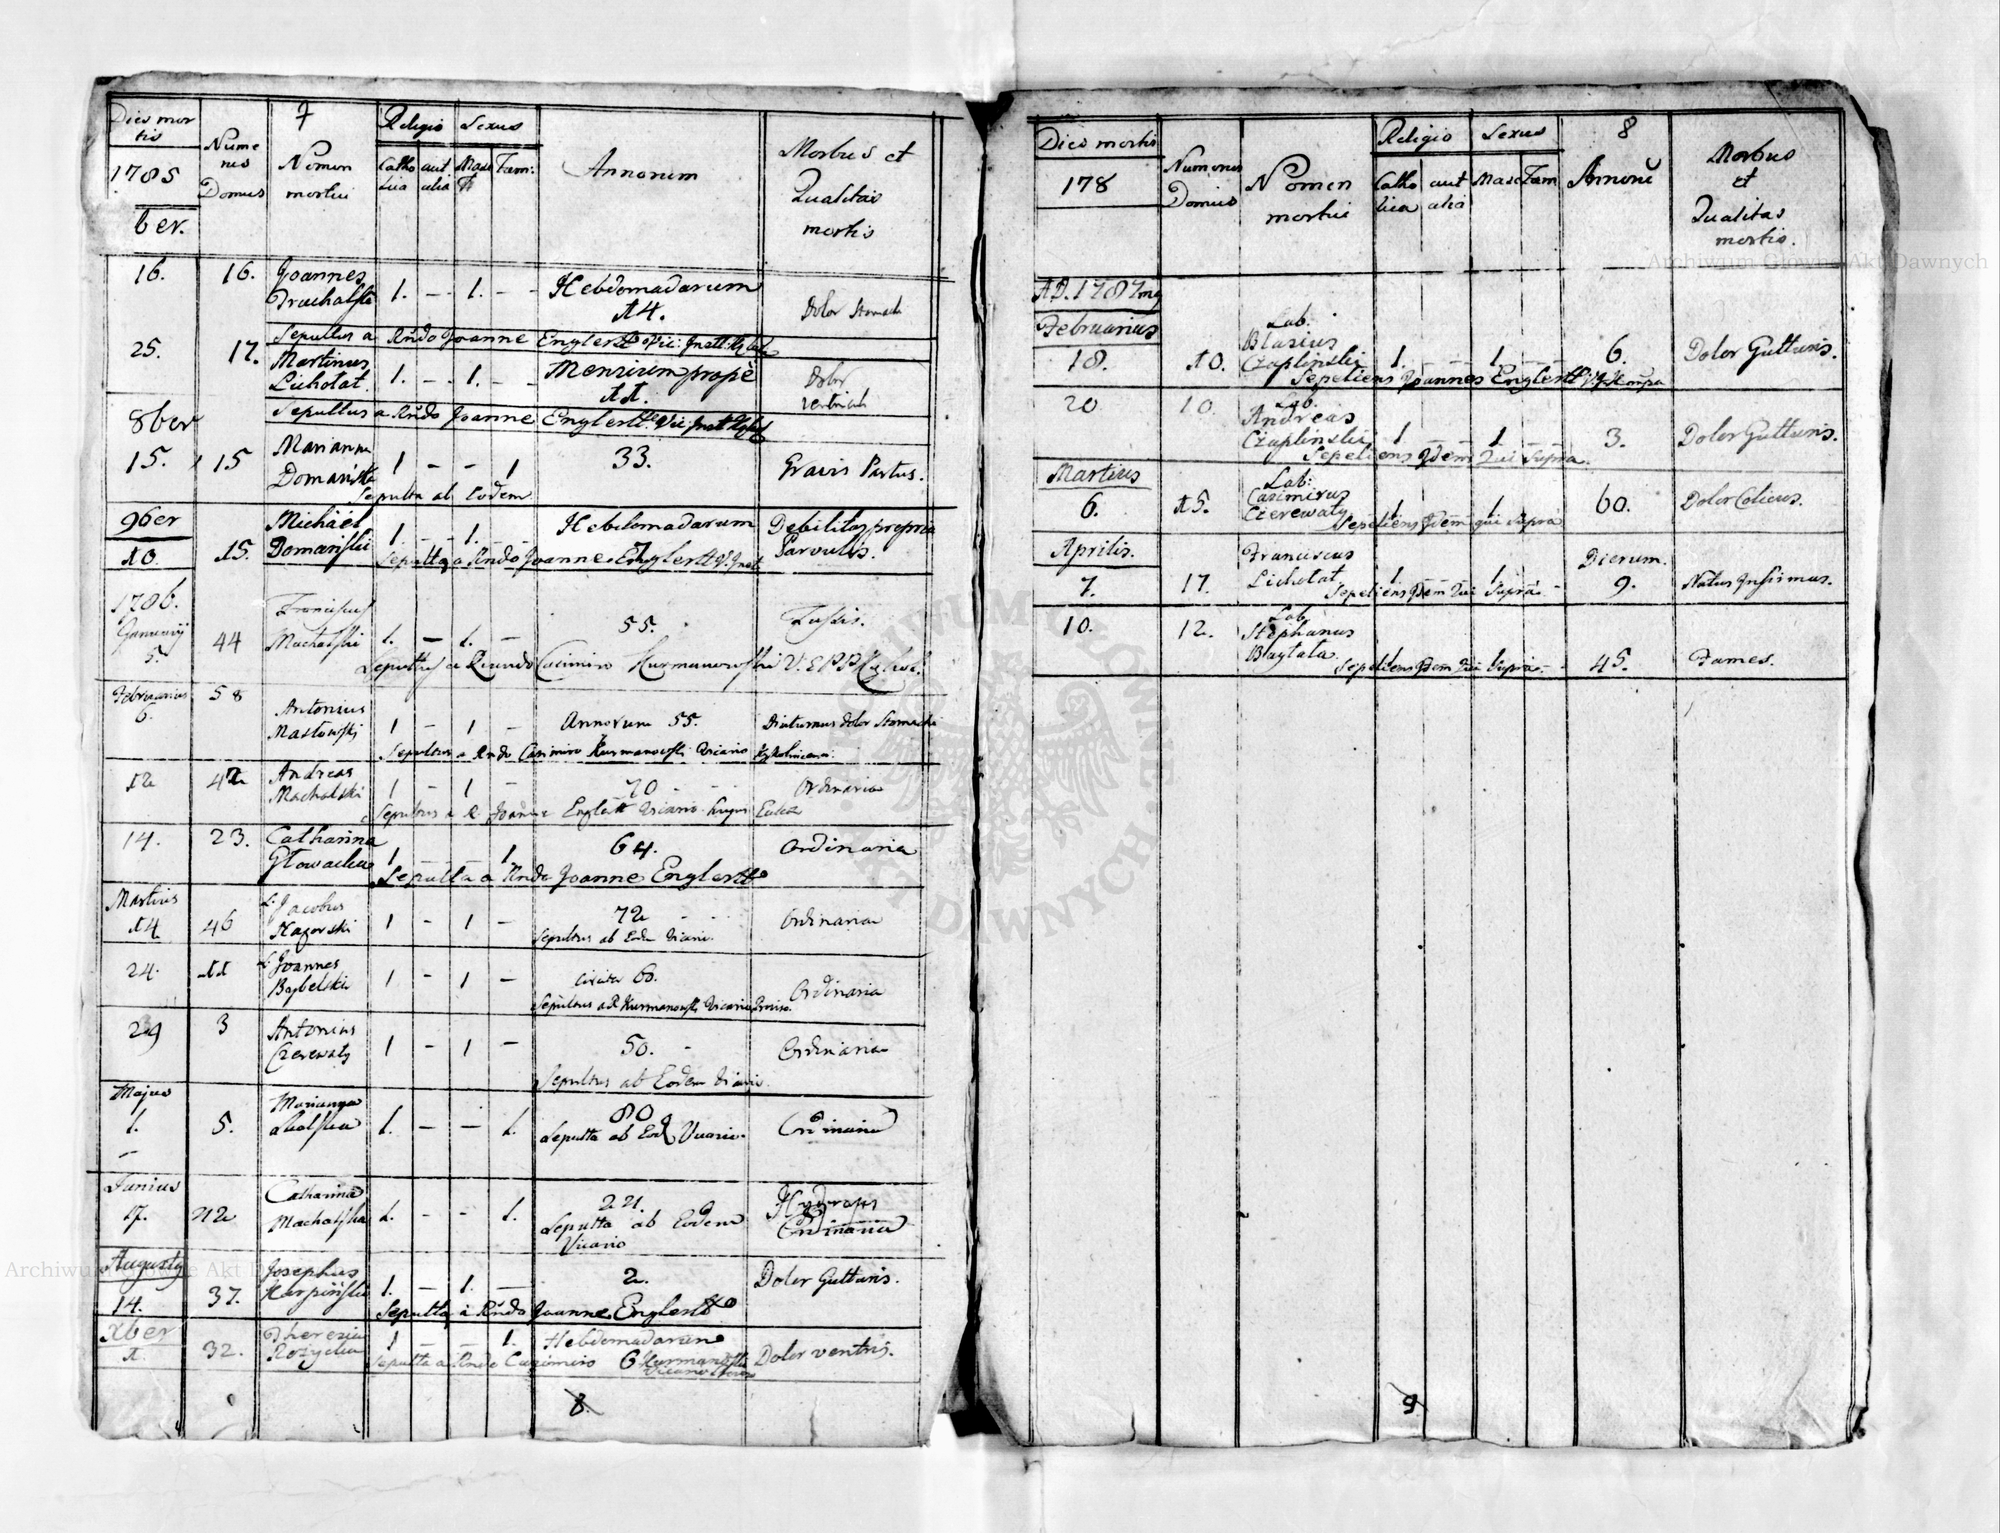 7
Dies mortis
1785
ber.
Numerus Domus
Nomen mortui
Religio
Catholica
aut alia
Sexus
Masc
Fæm:
Annorum
Morbus et Qualitas mortis
16.
16.
Joannes
1. - 1. -
Hebdomadarum
14.
Dolor Stomach
Sepultus a Rndo Joanne Englertt
25.
17.
Martinus
Lichotat.
1. - 1. -
Mensium propè
11.
Dolor
Sepultus a Rndo Joanne Englertt
8ber
15.
15
Marianna
Domańska
1 - - 1
33.
Gravis Partus.
Sepulta ab Eodem
9ber
10.
15.
Michäel
Domański
1 - 1. -
Hebdomadarum
7.
Debilitas propria
Parvulis.
a Rndo Joanne Englertt
1786.
January
5.
44
Franciscus
Machalski
1. - 1. -
55.
Tussis.
Sepultus a Casimiro Kurmanowski
Februarius
6.
58
Antonius
Masłowski
1 - 1 -
Annorum 55.
Diuturnus dolor Stomachi
Sepultus a Rndo Casimiro Kurmanowski Vicario
12
42
Andreas
Machalski
1 - 1 -
70
Ordinaria
Sepultus a R. Joanne Englertt Vicario hujus Eccl
14.
23.
Catharina
Głowacka
1 - - 1
64.
Ordinaria
Sepulta a Rndo Joanne Englertt
Martius
14
46
L. Jacobus
1 - 1 -
72
Ordinaria
Sepultus ab Eode Vicario
24.
11
L. Joannes
Bagbelski
1 - 1 -
circita 60.
Ordinaria
Sepultus a R Kurmanowski Vicario
29
3
Antonius
Czerewaty
1 - 1 -
50. -
Ordinaria
Sepultus ab Eodem Vicario.
Majus
1.
5.
Marianna
1. - - 1.
80
Sepulta ab Eod Vicario.
Ordinaria
Junius
17.
212
Catharina
Machalska
1. - - 1.
221.
Sepulta ab Eodem
Vicario
Hydrops
Ordinaria
Augusty
14.
37.
Josephus
Karpiński
1. - 1. -
2.
Dolor Gutturis.
Sepultus a Rndo Joanne Englertt
Xber
1.
32.
Theresia
Rozycka
1 - - 1.
Hebdomadarum
6
Dolor ventris.
Sepulta a Rndo Casimiro Kurmanowski
Vicario
8.
Dies mortis
178
Numerus Domus
Nomen mortui
Religio
Catholica
aut alia
Sexus
Masc
Fæm
8
Annorū
Morbus et Qualitas mortis.
AD. 1787mg
Februarius
18.
10.
Lab:
Blasius
Czaplinski
1. - 1 -
6.
Dolor Gutturis.
Sepeliens Joannes Englertt
20
10.
Lab.
Andreas
Czaplinski
1 - 1 -
3.
Dolor Gutturis.
Sepeliens Idem Qui Supra.
Martius
6.
15.
Lab:
Casimirus
Czerewaty
1 - 1 -
60.
Dolor Colicus.
Sepeliens Idem qui supra
Aprilis.
7.
17.
Franciscus
Lichotat
1 - 1 -
Dierum.
9.
Natus Infirmus.
Sepeliens Idem Qui Supra
10.
12.
Lab
Stephanus
Baytala
45.
Fames.
Sepeliens Idem Qui Supra
9
Archiwum Główne Akt Dawnych
Archiwum Główne Akt Dawnych
ARCHIWUM GŁÓWNE AKT DAWNYCH